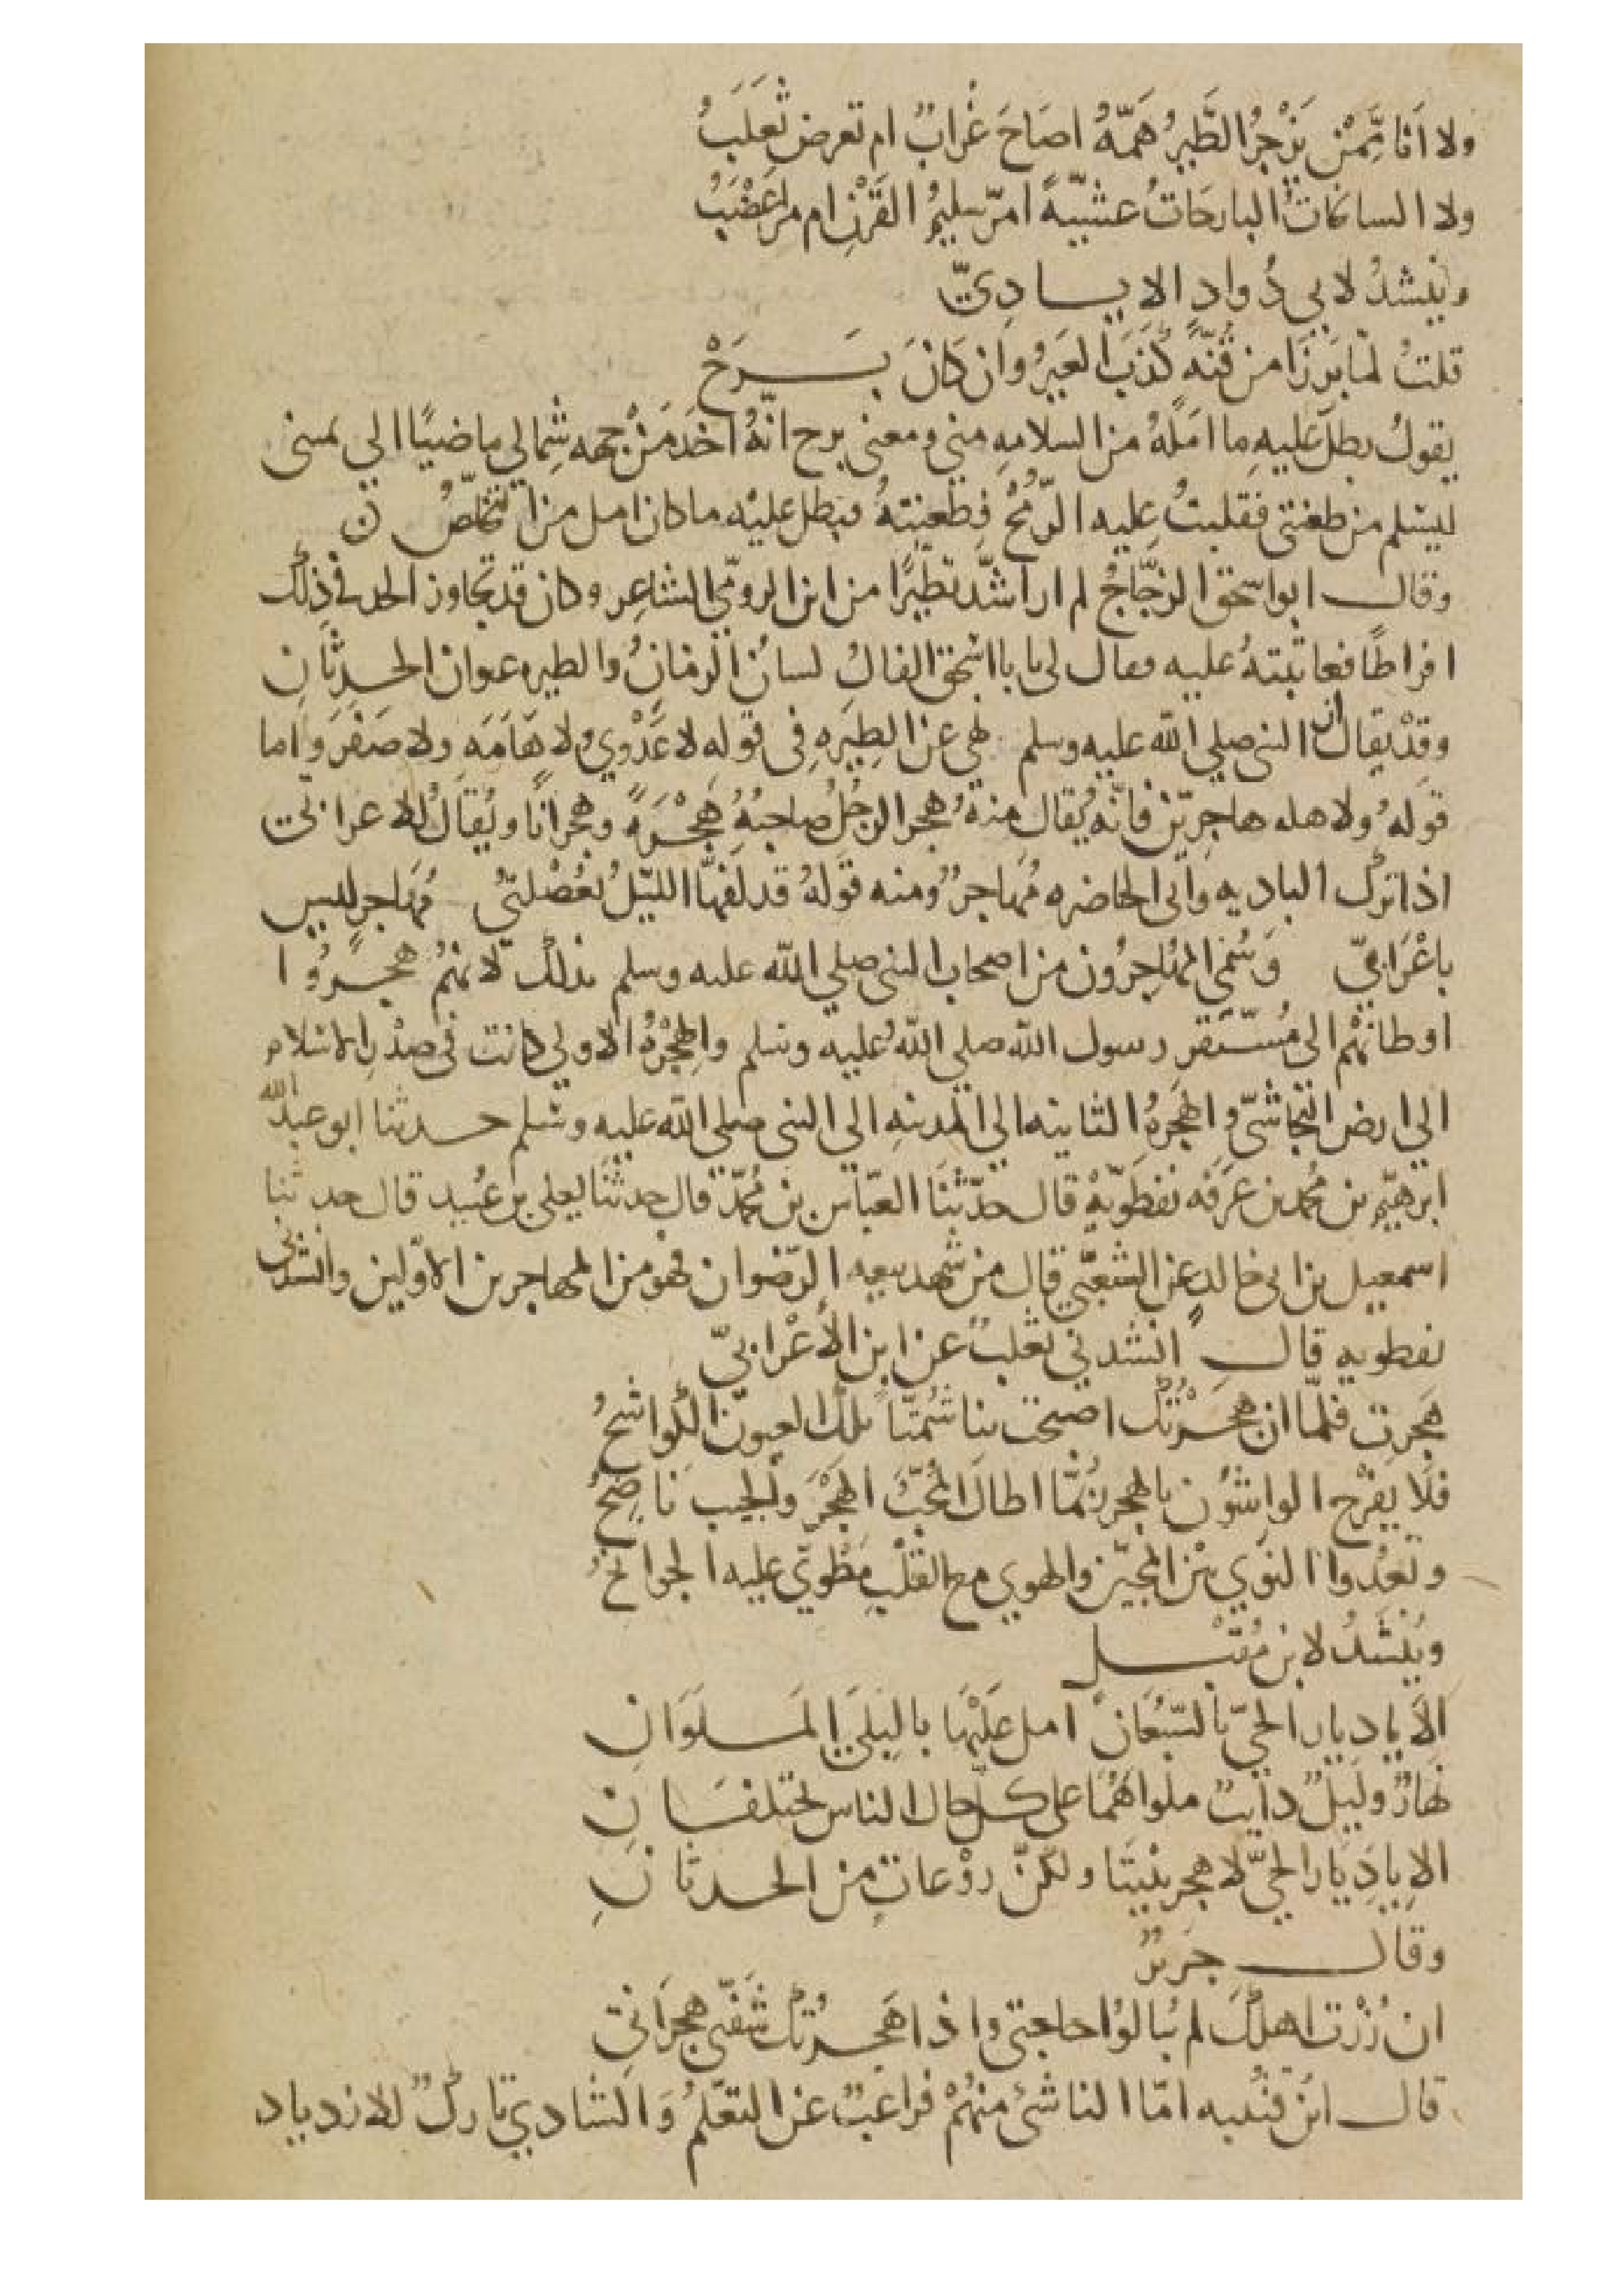 ولا اَنَا مِمَّنْ يَزْجُرُ الطَّيرُ هَمَّهُ اصَاحَ غُرابٌ ام تعرض ثَعلَبُ
ولا السانحاتُ البارحَاتُ عشيّةً امرّ سليمُ القَرْنِ ام مرّ اَعْضَبُ
ويُنشدُ لابي دُوادٍ الايادِيّ
قلتُ لمّا بَرَزَا من قُنّةٍ كَذَبَ العَيرُ وان كانَ بَرَحْ
يقولُ بطلَ عليهِ ما امَلَهُ من السلامهِ مني ومعنى برح انّهُ اخَذ مَنْ جهه شِمالي ماضيًا الي يمينى
ليسْلم من طعنتى فقلبتُ عليه الرّمُحْ فطعنتهُ فبطل عليْه ما كان امل من التخلّصُ ن
وقال ابو اسحق الزجَّاجُ لم ار اشدّ تطيّرًا من ابن الروميّ الشاعر وكان قد تجاوز الحد في ذلك
افراطًا فعاتبتهُ عليه فقال لى يا با اسْحق الفالُ لسانُ الزمَانِ والطيره عنوان الحدِثَانِ
وقدْ يقال ان النبى صلي الله عليه وسلم نهي عن الطيَرهِ فى قوله لا عَدْوي ولا هَامَه ولا صَفَرَ واما
قوله ولاهله هاجريّن فانّه يُقال منهُ هجر الرجُلُ صاحبُهُ هِجْرَةً وهجرانًا ويُقالُ للاعرابيّ
اذا ترك الباديه واتى الحاضره مُهاجرٌ ومنه قولهُ قد لفهّا الليّلُ بعُصْلبيّ مُهاجرٍ ليس
باعْرَابيّ وَسُمّي المهُاجرُون من اصحاب النبى صلي الله عليه وسلم بذلك لانهمُ هجَرُوا
اوطانهُم الى مُسْتقر رسول الله صلي اللهُ عليه وسلم والهِجْرهُ الاولي كانت فى صدْرِ الاسْلام
الي ارض النجاشيّ والهجَرهُ الثانيه الي المدينهِ الي النبى صلي الله عليه وسلم حدثنا ابو عبد الله
ابرهيمُ بن محُمد بن عَرَفَه نفطَويْه قال حدّثنَا العبّاس بن مُحمّدٍ قال حدثنَا يعلي بن عُبيد قال حدثنا
اسمعيل بن ابى خالدٍ عن الشعبّي قال من شهد بيعه الرّضوان فهو من المهاجرين الاوّلين وانشدنى
نفطويه قال انشدني ثعْلبٌ عن ابن الاَعْرابيّ
هَجرت فلمّا ان هَجَرْتُكَ اصبحت بنا شُمتّا تلك العيون الكواشحُ
فلَا يفرْح الواشون بالهجر رُبمَّا اطال المُحبّ الهَجْر والجيب ناصحُ
وتَعْدوا النَوي بَيْن المُحبيّن والهوي مع القلْبِ مَطْويّ عليه الجوانحُ
ويُنْشدُ لابن مُقبل
اَلاَ يا ديار الحَيّ بالسّبُعَانِ امل عَليْهَا بالبِلَي المَلَوَانِ
نهَارٌ ولَيلٌ دايبٌ ملواهُمَا على كلّ حال الناس يختلفَانِ
الا يا دِيَار الحَيّ لا هجر بيْننَا ولكنّ روْعاتٍ من الحدثَانِ
وقال جَريرٌ
ان زُرْت اهلكَ لم يُبالوُا حاجتى واذا هَجرتُك شَفنّي هجرَانِي
قال ابنُ قتُيبه امّا الناشئ منهُمْ فراغبٌ عن التعَلّمُ وَالشادي تاركٌ للازدياد